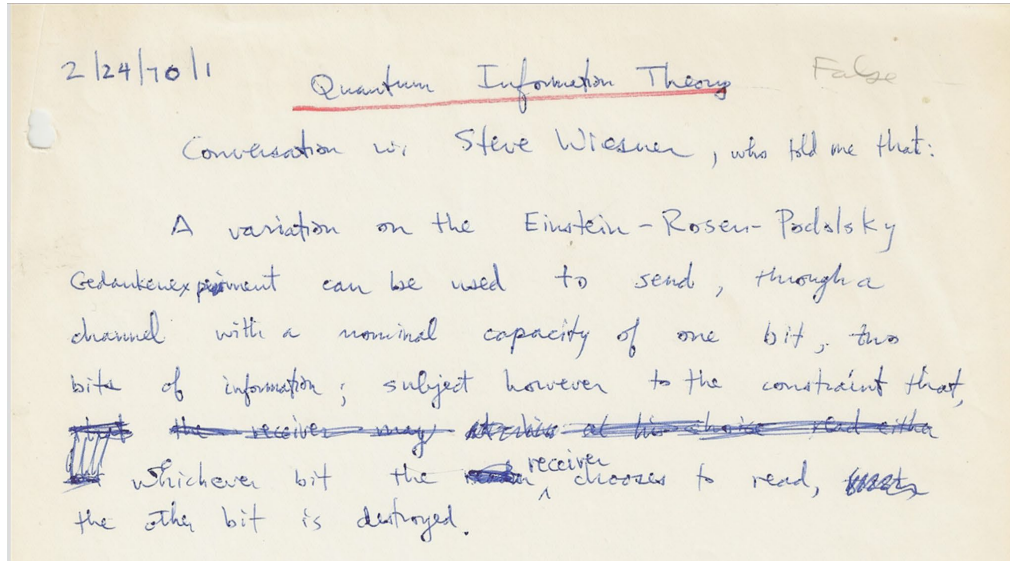 2/24/70/1
Quantum Information Theory
False
Conversation w. Steve Wiesner, who told me that:
A variation on the Einstein-Rosen-Podolsky
Gedankenexperiment can be used to send, through a
channel with a nominal capacity of one bit, two
bits of information; subject however to the constraint that,
that the receiver may at his choice read either
whichever bit the receiver chooses to read,
the other bit is destroyed.